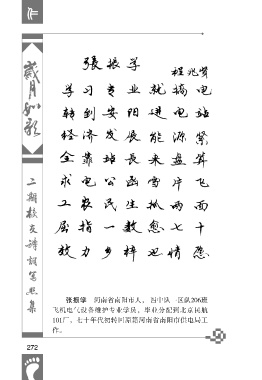 作
岁月如歌
二期校友诗词写照集
张振学
程兆贤
学习专业就搞电
转到安阳进电站
经济发展能源紧
全靠站长来盘算
求电公函雪片飞
工农民生抓两面
屈指一数愈七十
致力乡梓也情愿
张振学 河南省南阳市人，四中队一区队206班
飞机电气设备维护专业学员，毕业分配到北京民航
101厂。七十年代初转回原籍河南省南阳市供电局工
作。
272